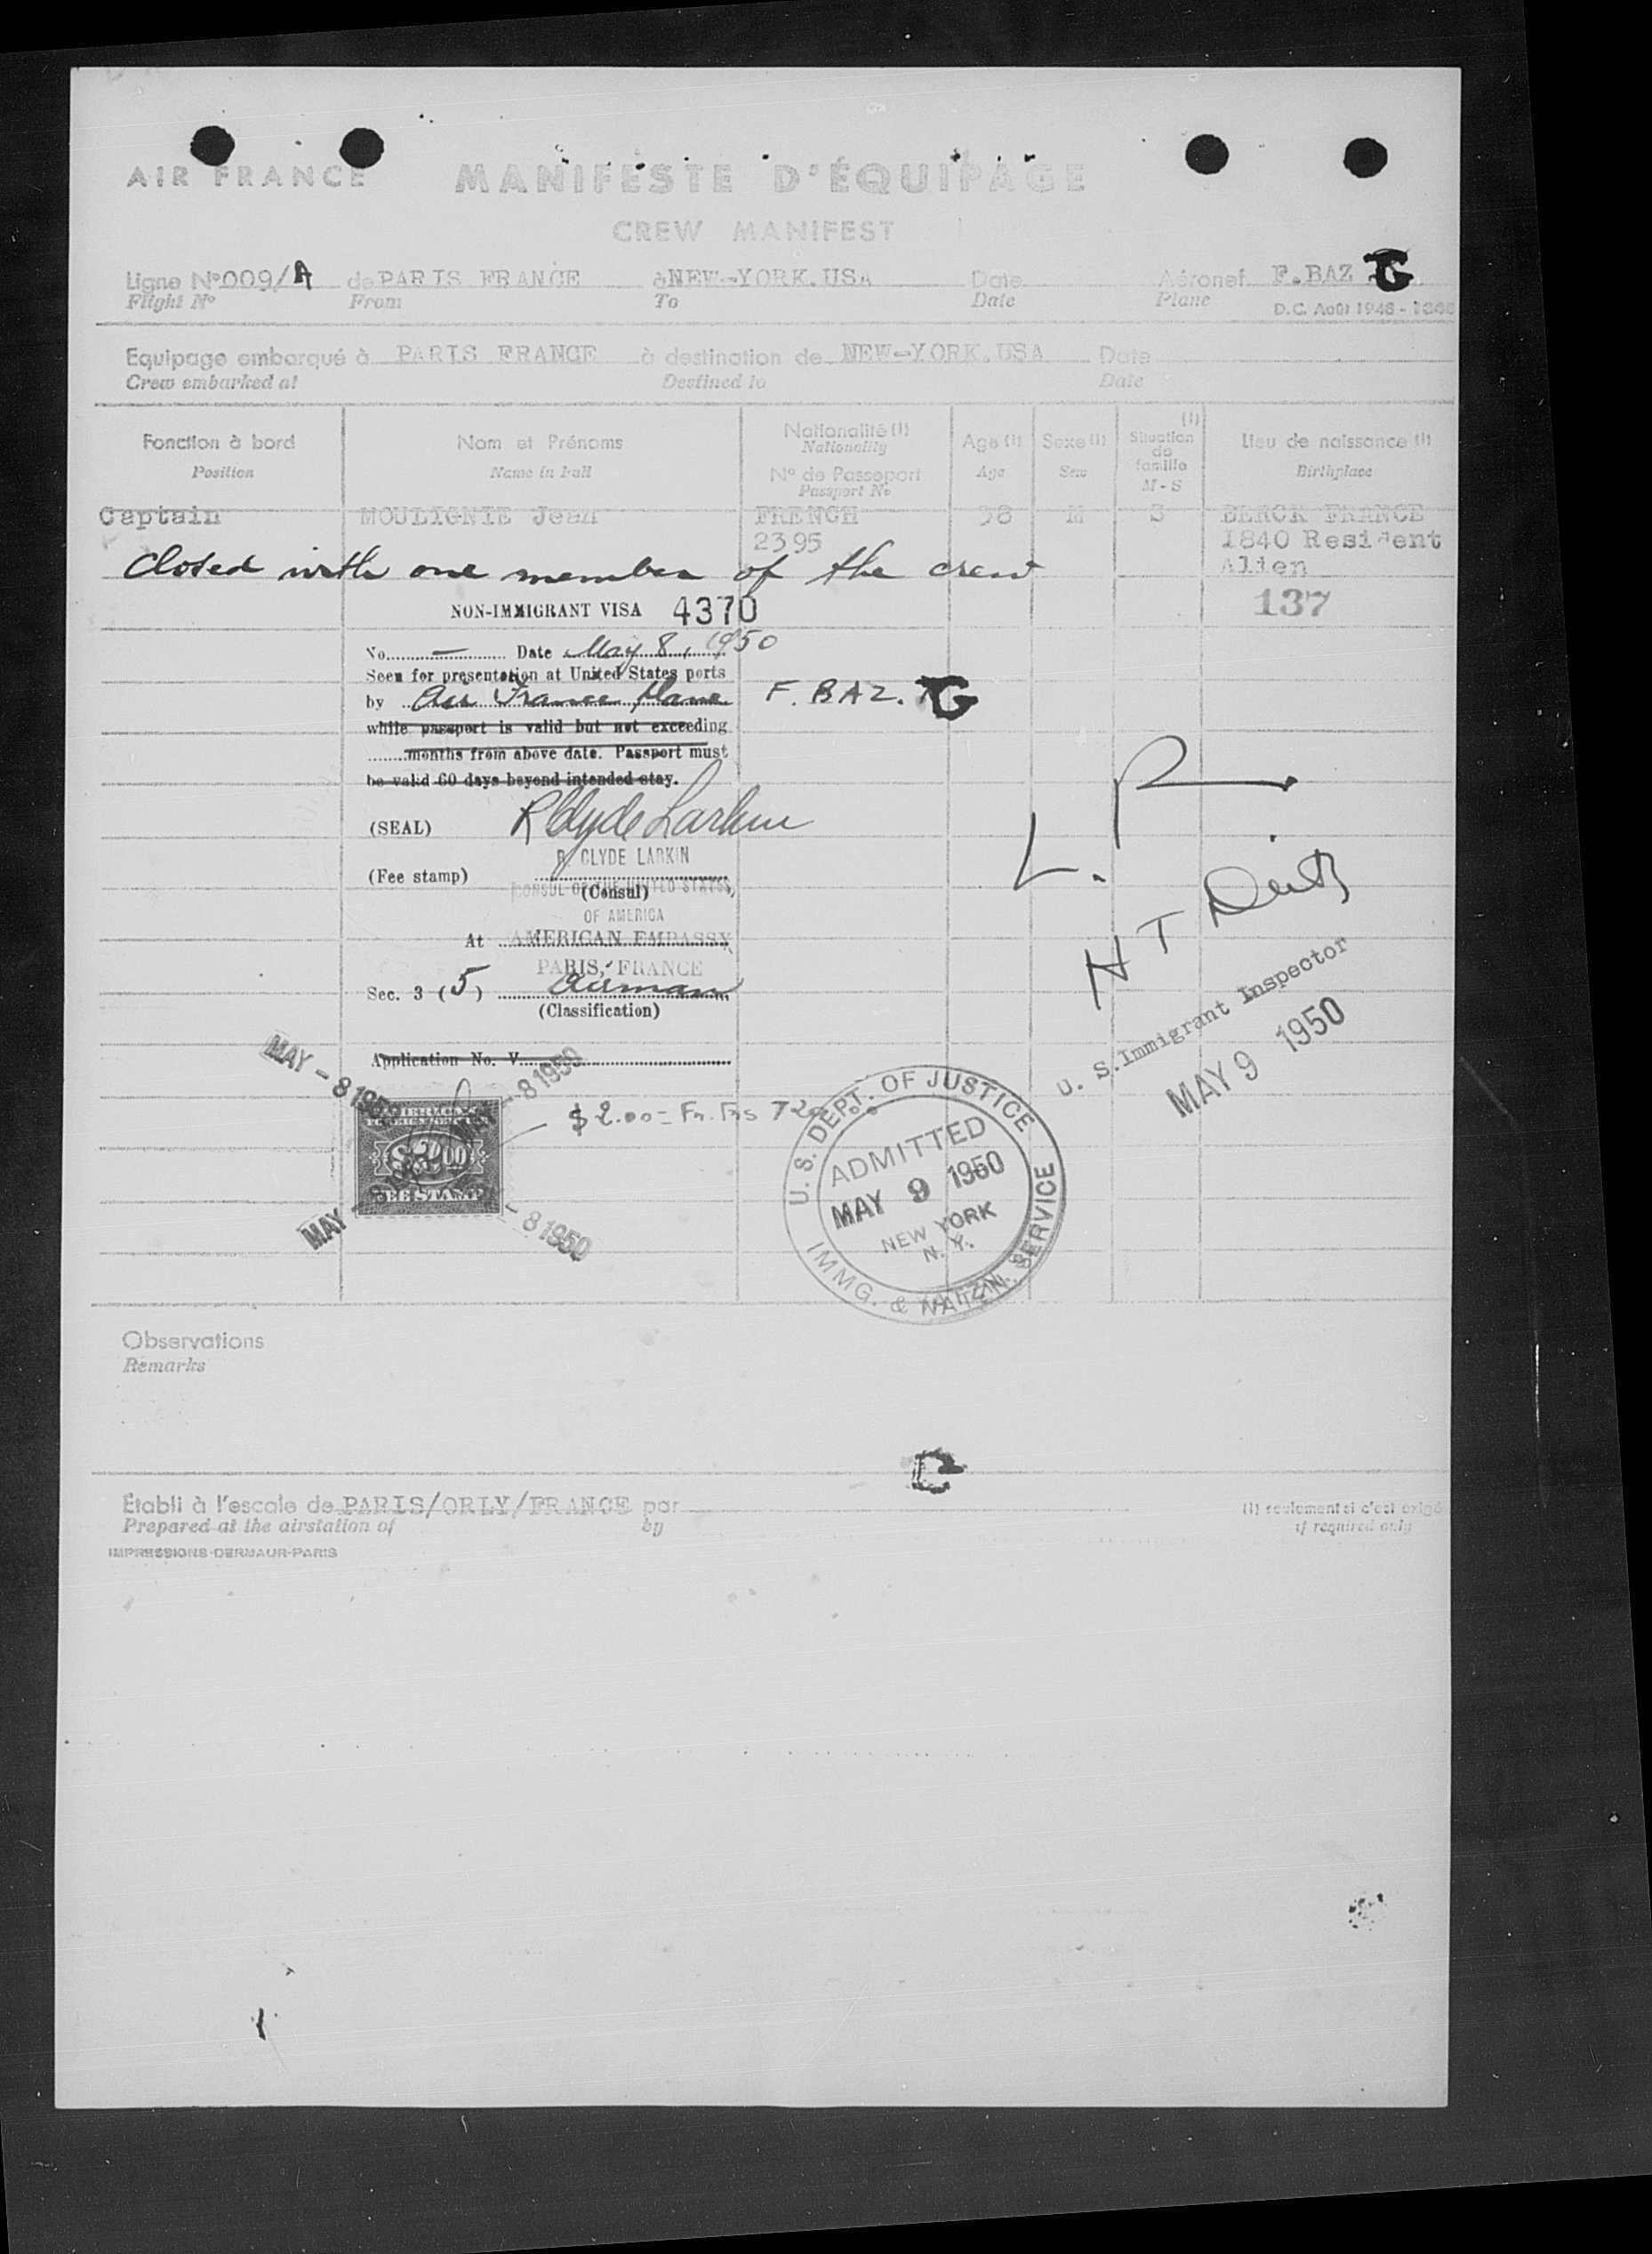 AIR FRANCE MANIFESTE D'ÉQUIPAGE
CREW MANIFEST
Ligne Nº 009/A de PARIS FRANCE à NEW-YORK.USA Date Aéronef F.BAZ G
Flight Nº From To Date Plane
D.C. Août 1948 -
Equipage embarqué à PARIS FRANCE à destination de NEW-YORK.USA Date
Crew embarked at Destined to Date
Fonction à bord Nom et Prénoms Nationalité (1) Age (1) Sexe (1) Situation de famille (1) Lieu de naissance (1)
Position Name in Full Nationality Age Sex M - S Birthplace
Nº de Passeport
Passport Nº
Captain MOULIGNIE Jean FRENCH 38 M S BERCK FRANCE
2395 1840 Resident
Alien
Closed with one member of the crew
NON-IMMIGRANT VISA 4370 137
No. — Date May 8, 1950
Seen for presentation at United States ports
by Air France plane F. BAZ. G
while passport is valid but not exceeding
months from above date. Passport must
be valid 60 days beyond intended stay.
(SEAL) R Clyde Larkin
R. CLYDE LARKIN
(Fee stamp)
CONSUL OF THE UNITED STATES
(Consul)
OF AMERICA
At AMERICAN EMBASSY
PARIS, FRANCE
Sec. 3 (5) Airman
(Classification)
Application No. V
L. R
H T
U. S. Immigrant Inspector
MAY 9 1950
MAY - 8 1950
- 8 1950
$2.00 = Fr. Frs
AMERICAN
$2.00
FEE STAMP
MAY
- 8 1950
U. S. DEPT. OF JUSTICE
ADMITTED
MAY 9 1950
NEW YORK
N. Y.
IMMG. & NATZN. SERVICE
Observations
Remarks
Etabli à l'escale de PARIS/ORLY/FRANCE par (1) seulement si c'est exigé
Prepared at the airstation of by if required only
IMPRESSIONS-DERMAUR-PARIS